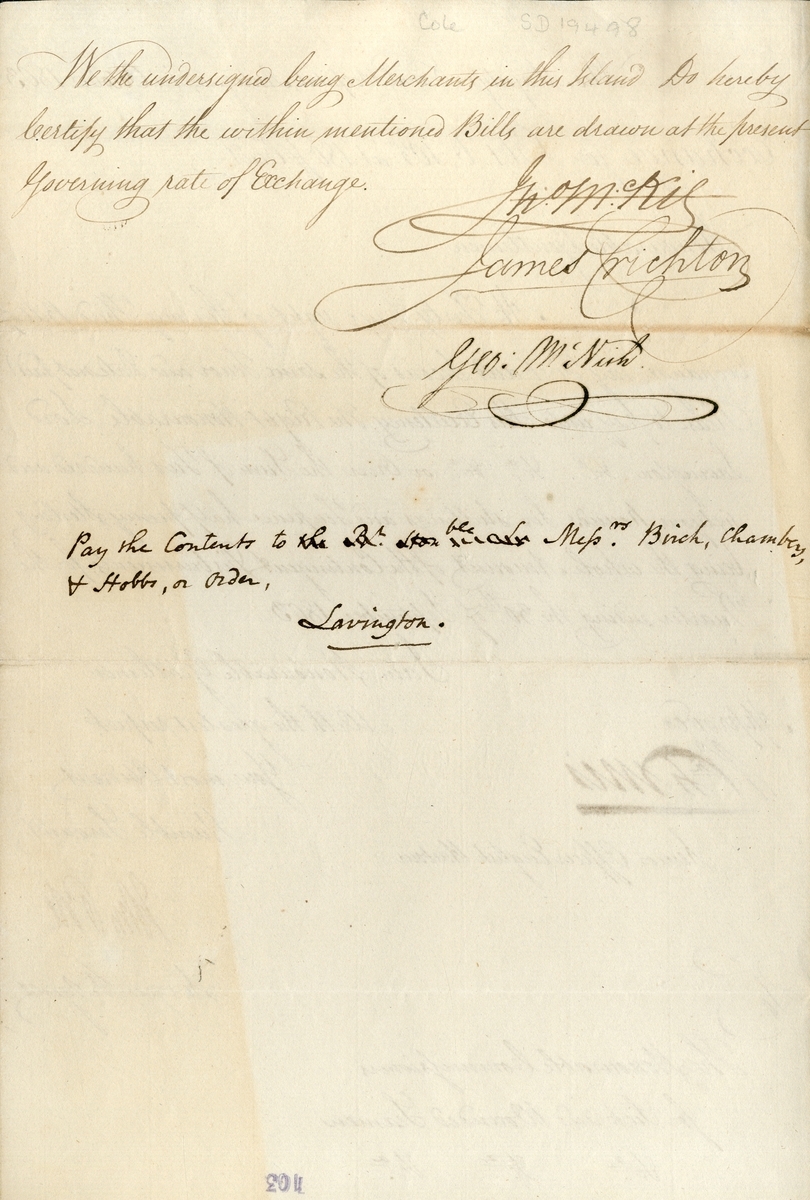 Cole SD19498
We the undersigned being Merchants in this Island Do hereby
Certify that the within mentioned Bills are drawn at the present
Governing rate of Exchange.
Jn.o McKie
James Crichton
Geo: McNish
Pay the Contents to the Rt. Honble. Messrs. Birch, Chambers,
& Hobbs, or order,
Lavington.
103